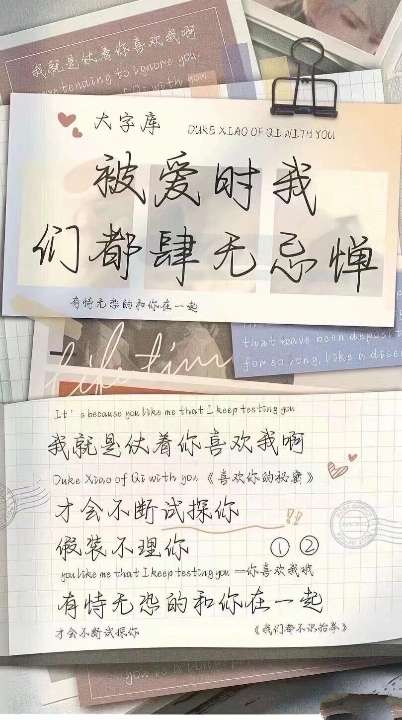 我就是仗着你喜欢我啊
pretending to ignore you.
Qi with you
大字库
DUKE XIAO OF QI WITH YOU
被爱时我
们都肆无忌惮
有恃无恐的和你在一起
that have been deposit
for so long, like a dice
like time
It's because you like me that I keep testing you
我就是仗着你喜欢我啊
Duke Xiao of Qi with you 《喜欢你的秘密》
才会不断试探你
假装不理你 ① ②
you like me that I keep testing you —你喜欢我哦
有恃无恐的和你在一起
才会不断试探你 《我们都不识抬举》